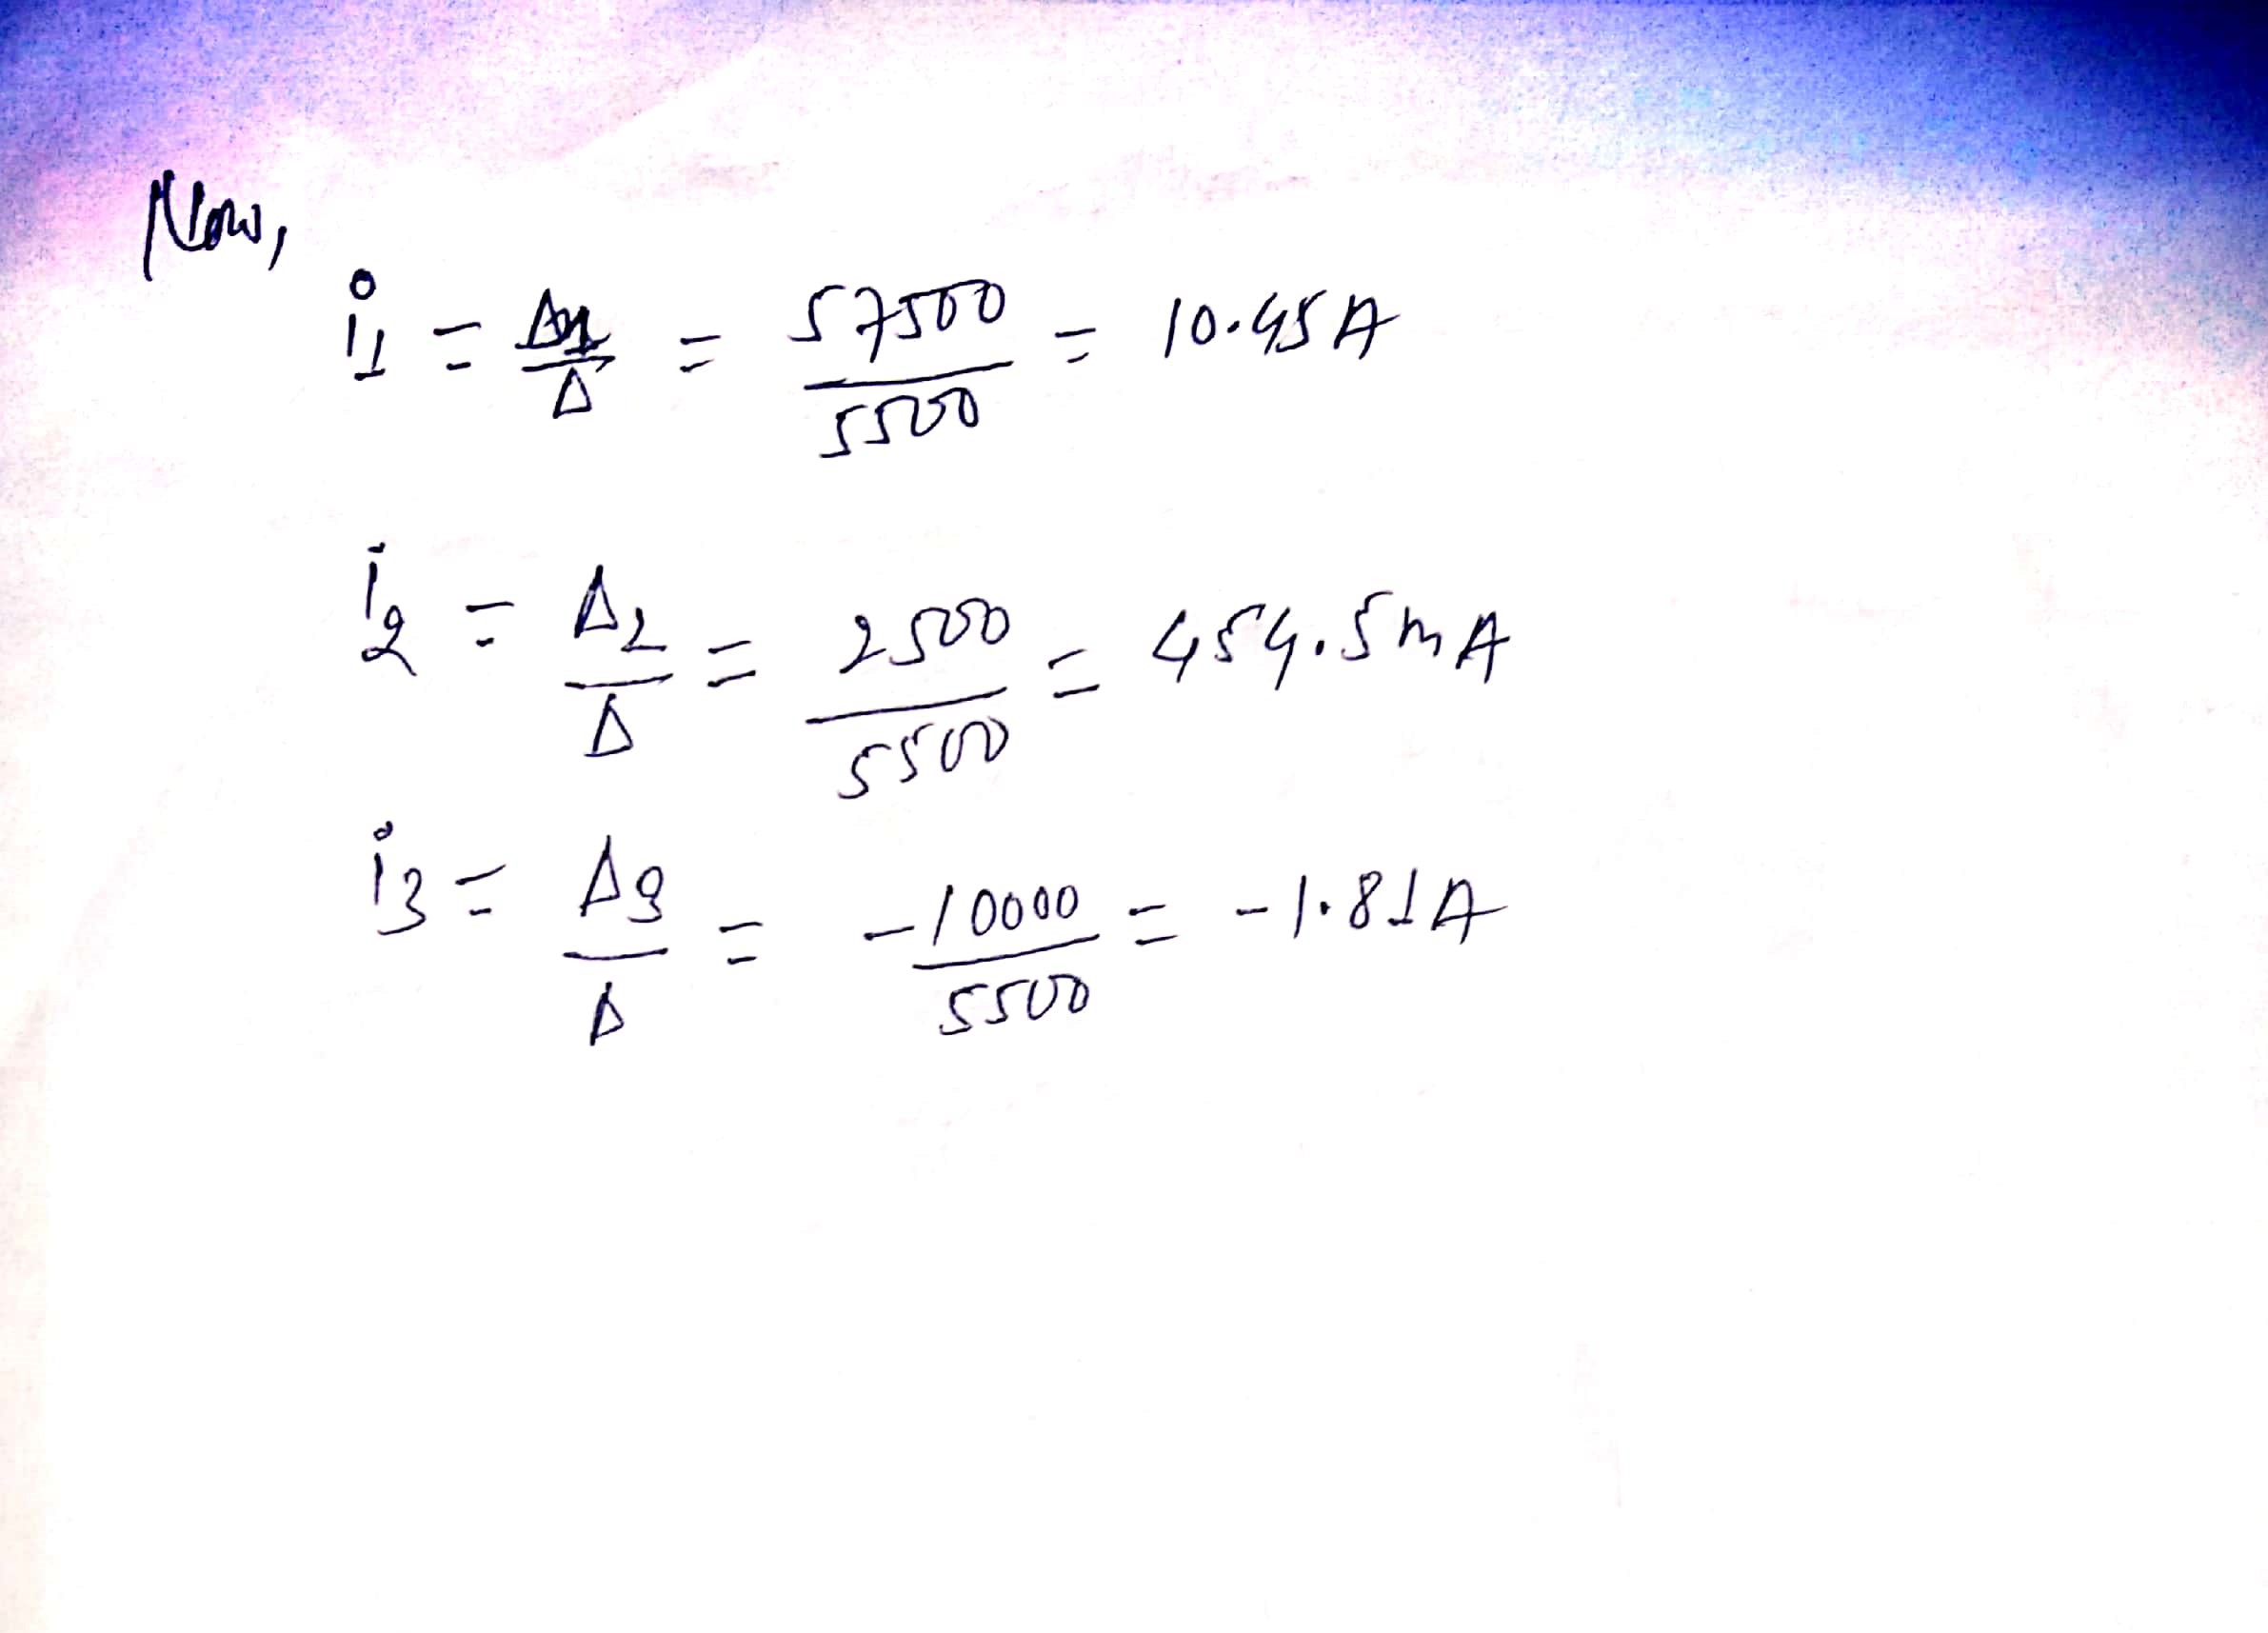 Now,
i₁ = Δ₁/Δ = 57500/5500 = 10.45A
i₂ = Δ₂/Δ = 2500/5500 = 454.5mA
i₃ = Δ₃/Δ = -10000/5500 = -1.81A